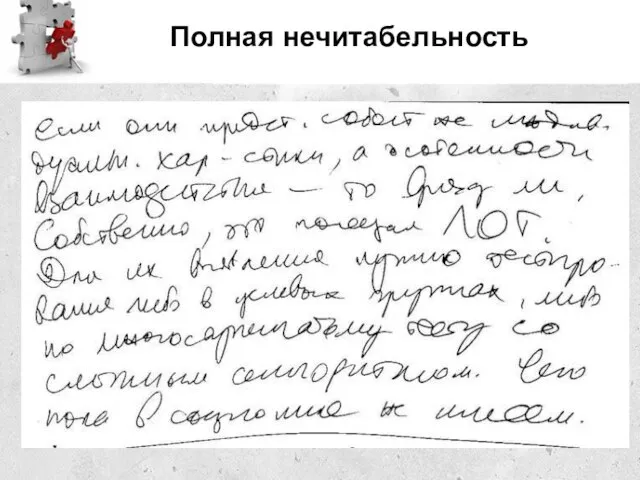 Полная нечитабельность
если они предст. собой не индиви-
дуальн. хар-стики, а особенности
взаимодействия — то вряд ли,
Собственно, это показал ЛОТ.
Для их выявления нужно тестиро-
вание либо в целевых группах, либо
по многоаспектному тесту со
сложным алгоритмом. Чего
пока в соционике не имеем.